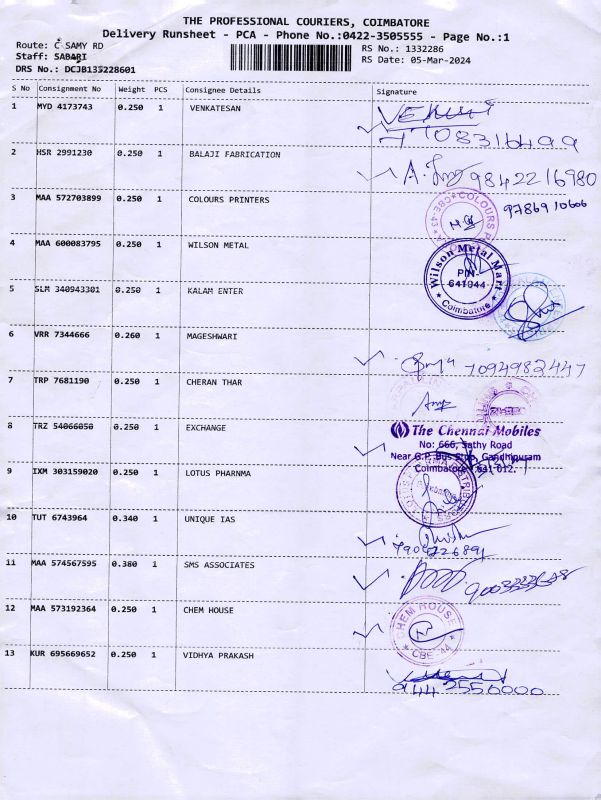 THE PROFESSIONAL COURIERS, COIMBATORE
Delivery Runsheet - PCA - Phone No.:0422-3505555 - Page No.:1
Route: C SAMY RD
Staff: SABARI
DRS No.: DCJB133228601
RS No.: 1332286
RS Date: 05-Mar-2024
S No Consignment No Weight PCS Consignee Details Signature
1 MYD 4173743 0.250 1 VENKATESAN
2 HSR 2991230 0.250 1 BALAJI FABRICATION
9842216980
3 MAA 572703899 0.250 1 COLOURS PRINTERS
COLOURS
9786910606
4 MAA 600083795 0.250 1 WILSON METAL
Wilson Metal Mart
PIN
641044
Coimbatore
5 SLM 340943301 0.250 1 KALAM ENTER
6 VRR 7344666 0.260 1 MAGESHWARI
7094982447
7 TRP 7681190 0.250 1 CHERAN THAR
8 TRZ 54066050 0.250 1 EXCHANGE
The Chennai Mobiles
No: 666, Sathy Road
Near G.P. Bus Stop, Gandhipuram
Coimbatore - 641 012.
9 IXM 303159020 0.250 1 LOTUS PHARNMA
10 TUT 6743964 0.340 1 UNIQUE IAS
11 MAA 574567595 0.380 1 SMS ASSOCIATES
12 MAA 573192364 0.250 1 CHEM HOUSE
CHEM HOUSE
CBE-44
13 KUR 695669652 0.250 1 VIDHYA PRAKASH